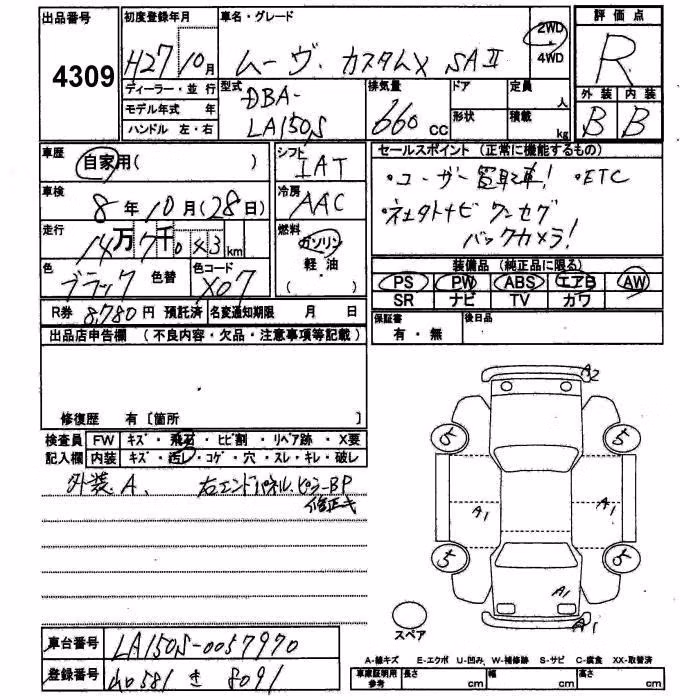 出品番号
4309
初度登録年月
H27 10月
車名・グレード
ムーヴ カスタムX SAⅡ
2WD
4WD
評価点
R
外装 内装
B B
ディーラー・並行
モデル年式 年
ハンドル 左・右
型式
DBA-
LA150S
排気量
660 cc
ドア
形状
定員
人
積載
kg
車歴
自家用( )
車検
8年10月(28日)
走行
14万7千043km
色
ブラック 色替
色コード
X07
シフト
IAT
冷房
AAC
燃料
ガソリン
軽油
( )
セールスポイント(正常に機能するもの)
・ユーザー買取車! ・ETC
・社外ナビ ワンセグ
バックカメラ!
装備品(純正品に限る)
PS PW ABS エアB AW
SR ナビ TV カワ
R券 8,780円 預託済 名変通知期限 月 日
保証書
有・無
後日品
出品店申告欄(不良内容・欠品・注意事項等記載)
修復歴 有〔箇所 〕
検査員 FW キズ・飛石・ヒビ割・リペア跡・X要
記入欄 内装 キズ・汚レ・コゲ・穴・スレ・キレ・破レ
外装.A、 右エンドパネル.ピラーBP
修正キ
A2
5 5
A1 A1
5 5
A1
A1
スペア
車台番号 LA150S-0057970
登録番号 40581 き 8091
A-線キズ E-エクボ U-凹み W-補修跡 S-サビ C-腐食 XX-取替済
車庫証明用
参考
長さ cm 幅 cm 高さ cm